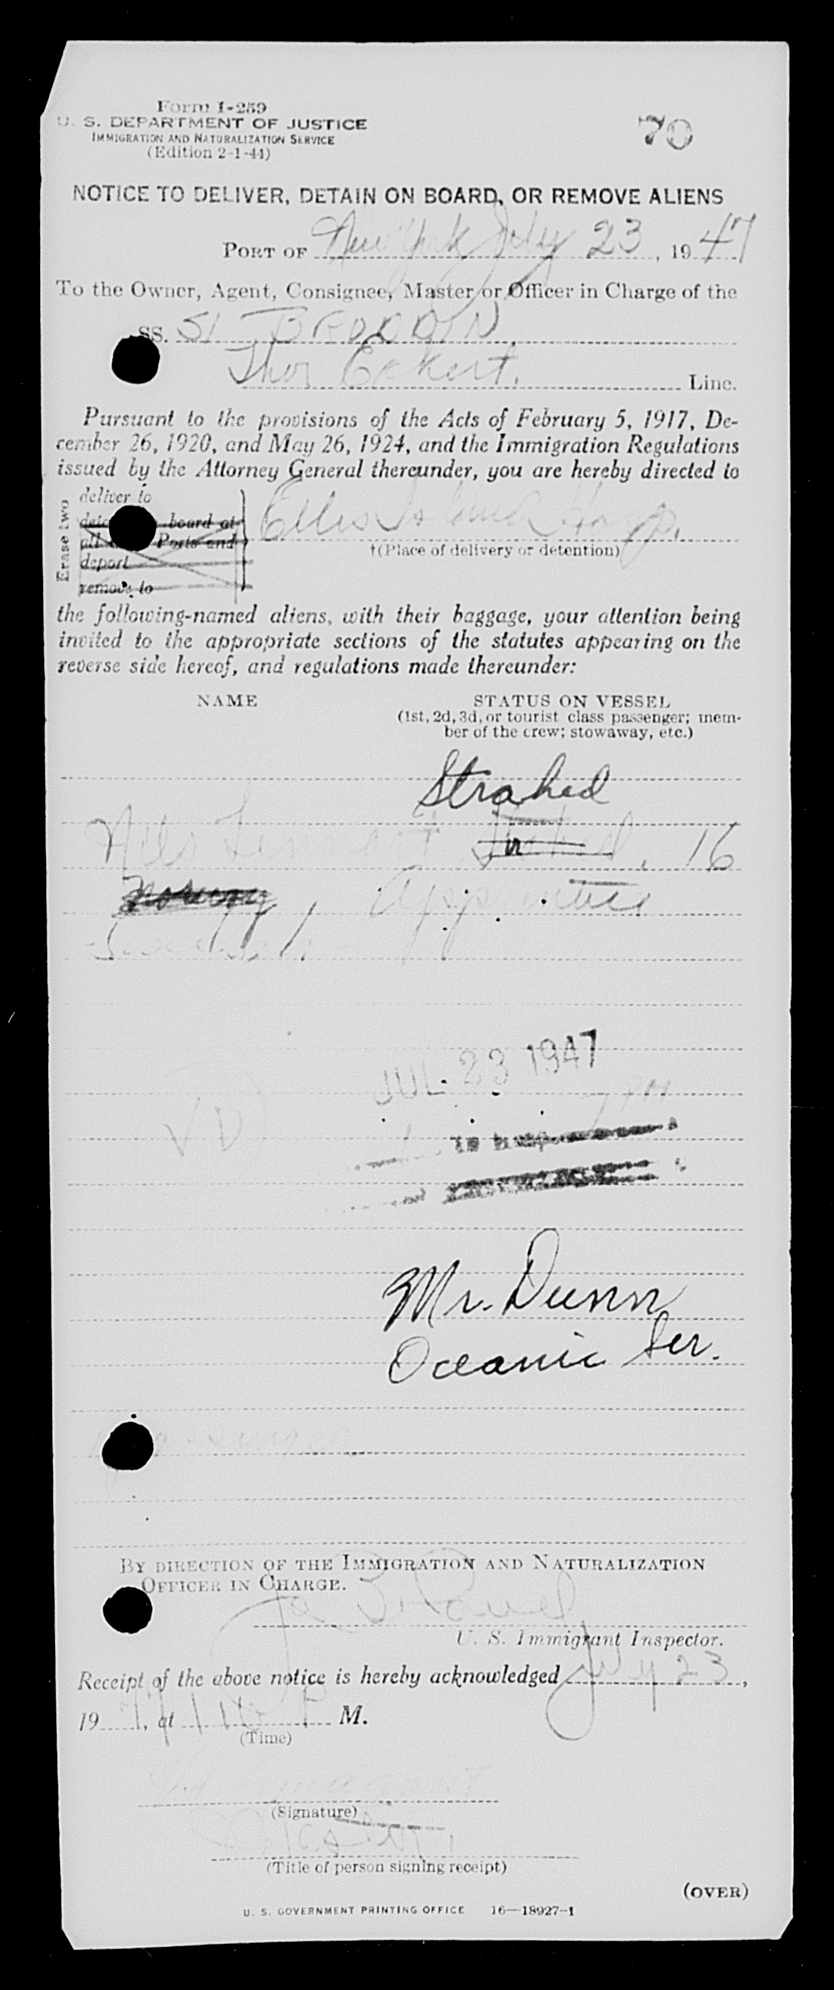 Form I-259
U. S. DEPARTMENT OF JUSTICE
IMMIGRATION AND NATURALIZATION SERVICE
(Edition 2-1-44)
70
NOTICE TO DELIVER, DETAIN ON BOARD, OR REMOVE ALIENS
PORT OF New York July 23, 1947
To the Owner, Agent, Consignee, Master or Officer in Charge of the
SS. S/
Thor Eckert. Line.
Pursuant to the provisions of the Acts of February 5, 1917, De-
cember 26, 1920, and May 26, 1924, and the Immigration Regulations
issued by the Attorney General thereunder, you are hereby directed to
Erase two
deliver to
board at
all Ports and
deport
remove to
Ellis Island Hosp.
†(Place of delivery or detention)
the following-named aliens, with their baggage, your attention being
invited to the appropriate sections of the statutes appearing on the
reverse side hereof, and regulations made thereunder:
NAME
STATUS ON VESSEL
(1st, 2d, 3d, or tourist class passenger; mem-
ber of the crew; stowaway, etc.)
Nils
16
Apprentice
JUL 23 1947
VD
to hosp.
Mr. Dunn
Oceanic Ser.
BY DIRECTION OF THE IMMIGRATION AND NATURALIZATION
OFFICER IN CHARGE.
U. S. Immigrant Inspector.
Receipt of the above notice is hereby acknowledged July 23,
19 , at P M.
(Time)
(Signature)
(Title of person signing receipt)
(OVER)
U. S. GOVERNMENT PRINTING OFFICE 16—18927-1